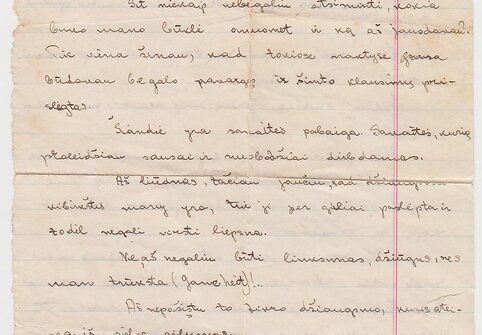 Ir niekaip nebegaliu atsiminti, kokia
buvo mano būklė anuomet ir ką aš jausdavau.
Tik viena žinau, kad tokiose naktyse
būdavau be galo pavargęs ir šimto klausimų pri-
slėgtas.
Šiandie yra savaitės pabaiga. Savaitės, kurią
praleidžiau sausai ir nuobodžiai dirbdamas.
Aš liūdnas, tačiau jaučiu, kad džiaugsmo
kibirkštis manyje yra, tik ji per giliai paslėpta ir
todėl negali virsti liepsna.
Ne, aš negaliu būti linksmas, džiugus, nes
man trūksta
Aš nepažįstu to tikro džiaugsmo, kuris atei-
na iš